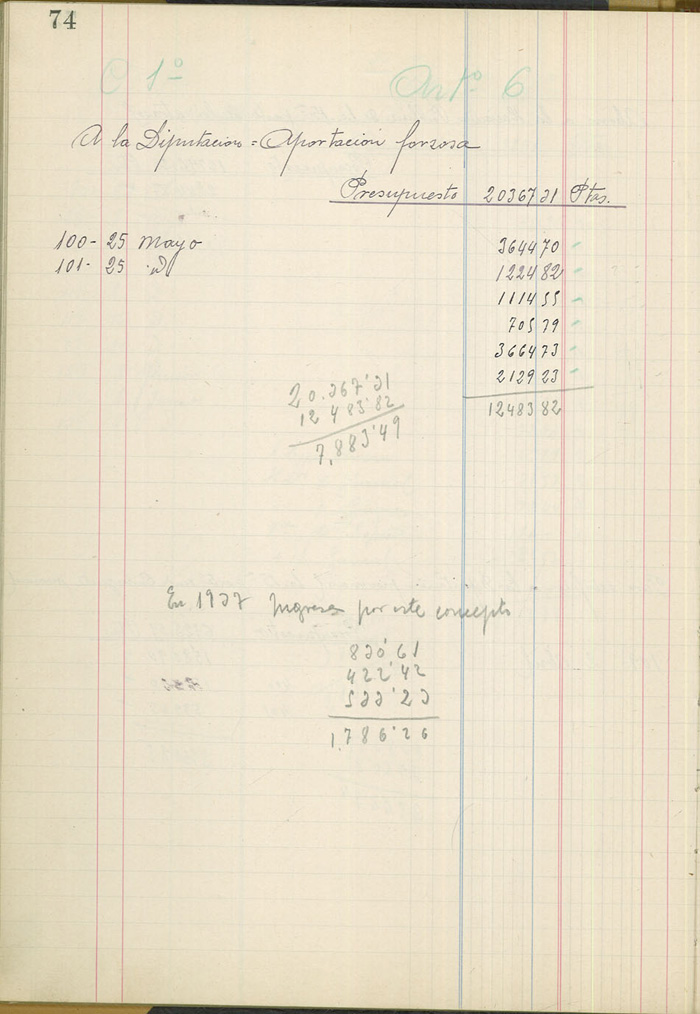 74
C 1º Artº 6
A la Diputacion = Aportación forzosa
Presupuesto 20367 31 Ptas.
100- 25 Mayo 3644 70
101- 25 id 1224 82
1114 55
705 79
3664 73
2129 23
12483 82
20.367'31
12483'82
7,883'49
En 1937 Ingresa por este concepto
830'61
422'42
533'23
1.786'26